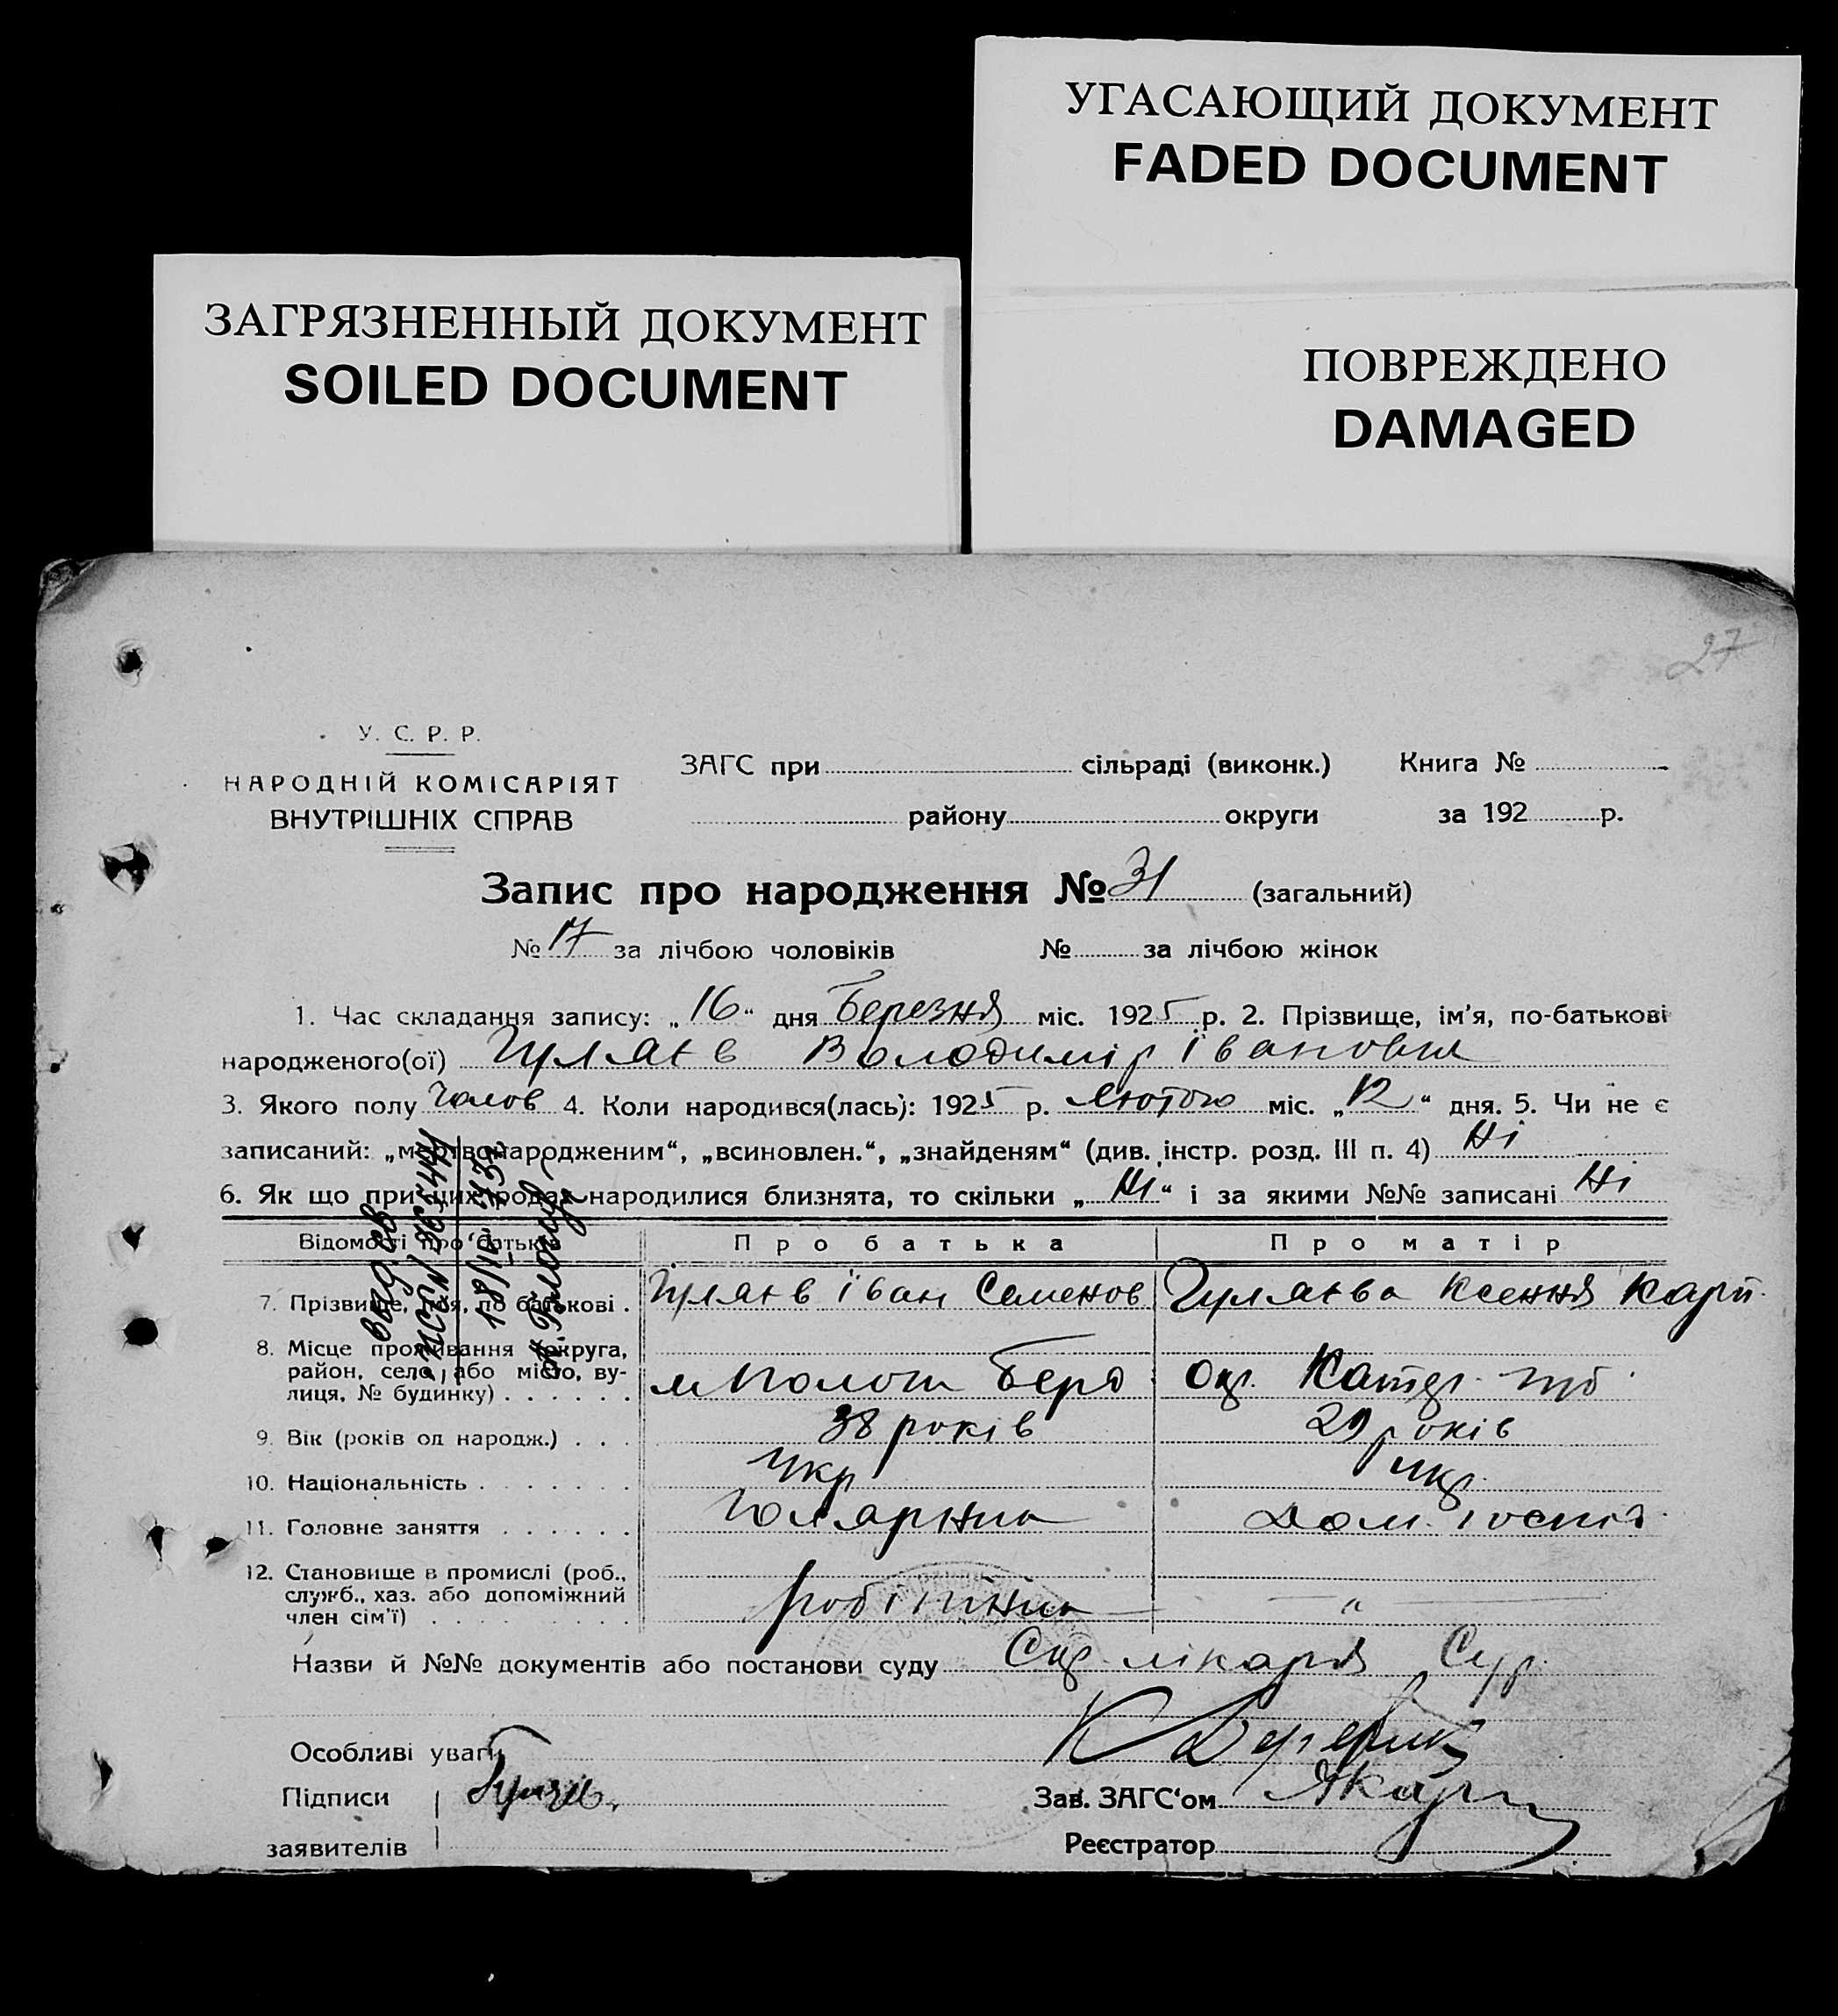 УГАСАЮЩИЙ ДОКУМЕНТ
FADED DOCUMENT
ЗАГРЯЗНЕННЫЙ ДОКУМЕНТ
SOILED DOCUMENT
ПОВРЕЖДЕНО
DAMAGED
27
У. С. Р. Р.
НАРОДНІЙ КОМІСАРІЯТ
ВНУТРІШНІХ СПРАВ
ЗАГС при сільраді (виконк.) Книга №
району округи за 192 р.
Запис про народження № 31 (загальний)
№ 17 за лічбою чоловіків № за лічбою жінок
1. Час складання запису: „16“ дня Березня міс. 1925 р. 2. Прізвище, ім'я, по-батькові
народженого(ої) Гуляєв Володимір Іванович
3. Якого полу Чолов 4. Коли народився(лась): 1925 р. Лютого міс. „12“ дня. 5. Чи не є
записаний: „мертвонародженим“, „всиновлен.“, „знайденям“ (див. інстр. розд. III п. 4) Ні
6. Як що при цих родах народилися близнята, то скільки „Ні“ і за якими №№ записані Ні
Відомості про батьків Про батька Про матір
7. Прізвище, ім'я, по батькові . Гуляєв Іван Семенов Гуляєва Ксення Карп.
8. Місце проживання (округа,
район, село, або місто, ву-
лиця, № будинку) . . . . . . м Берд. Окр. Катер. губ.
9. Вік (років од народж.) . . . 38 років 29 років
10. Національність . . . . . . . Укр Укр.
11. Головне заняття . . . . . . Дом. госпід.
12. Становище в промислі (роб.,
служб., хаз. або допоміжний
член сім'ї) . . . . . . . . . робітник — „ —
Назви й №№ документів або постанови суду лікаря
Особливі уваги
Підписи
Зав. ЗАГС'ом
заявителів
Реєстратор